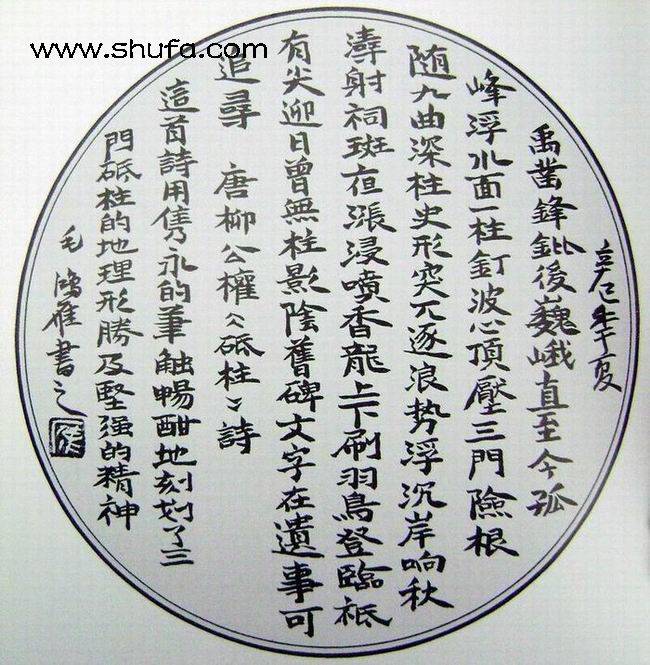 www.shufa.com
辛巳年夏
禹凿鋒鈚後巍峨直至今孤
峰浮水面一柱釘波心頂壓三門險根
随九曲深柱史形突兀逐浪势浮沉岸响秋
濤射祠斑夜漲浸噴香龍上下刷羽鳥登臨祗
有尖迎日曾無柱影陰舊碑文字在遺事可
追尋 唐柳公權《砥柱》詩
這首詩用雋永的筆触暢酣地刻划了三
門砥柱的地理形勝及堅强的精神
毛鴻雁書之